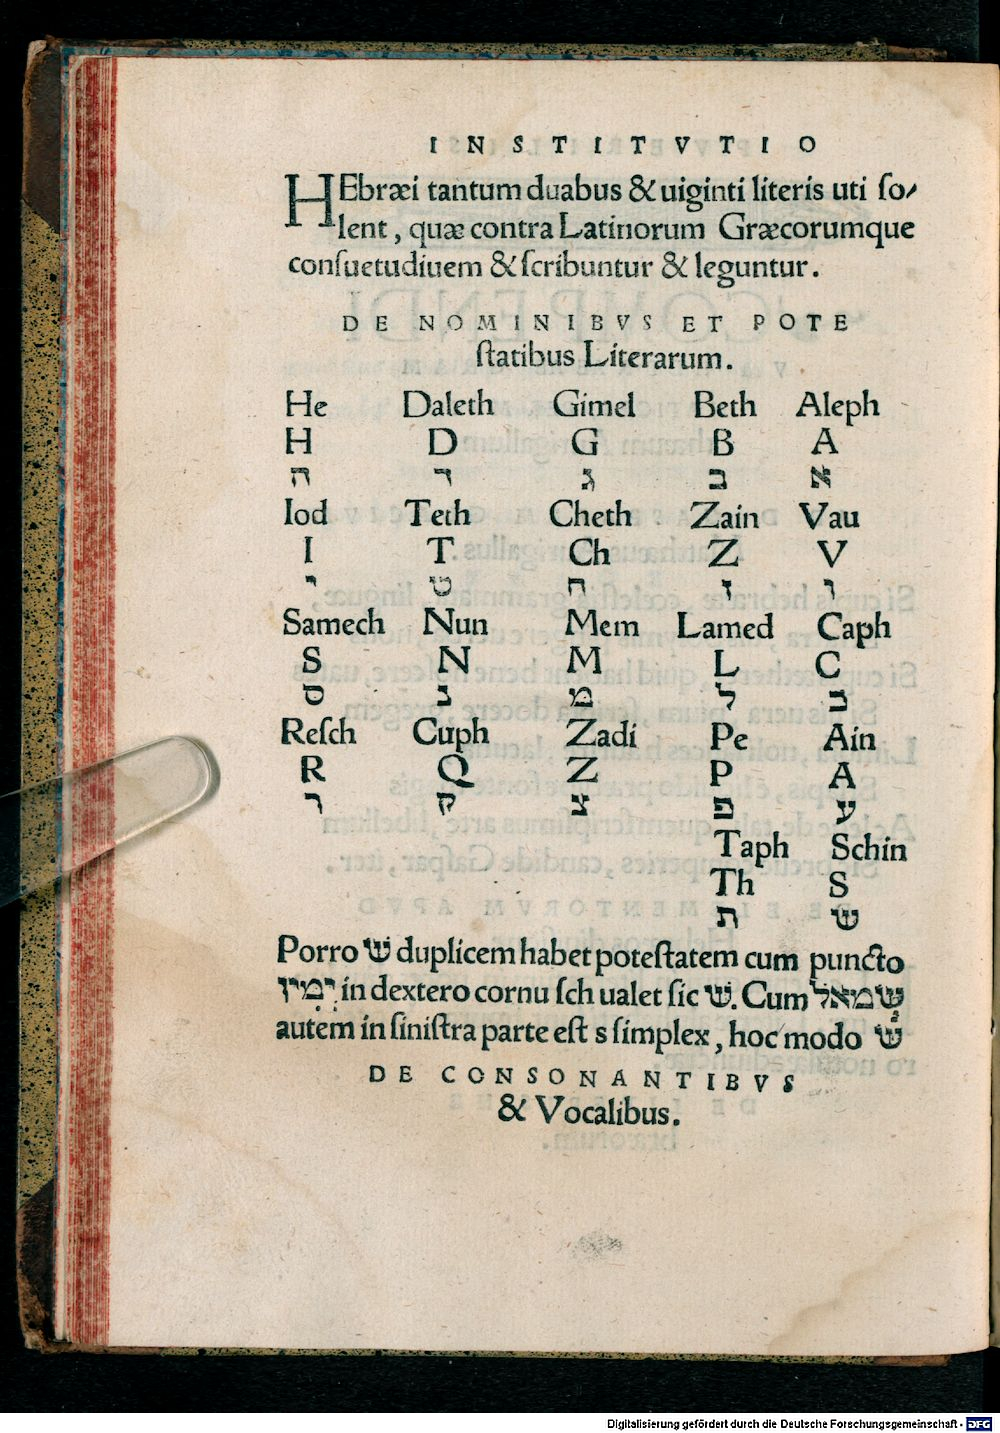 INSTITVTIO
HEbræi tantum duabus & uiginti literis uti ſo⸗
lent, quæ contra Latinorum Græcorumque
conſuetudiuem & ſcribuntur & leguntur.
DE NOMINIBVS ET POTE
ſtatibus Literarum.
He Daleth Gimel Beth Aleph
H D G B A
ה ד ג ב א
Iod Teth Cheth Zain Vau
I T Ch Z V
י ט ח ז ו
Samech Nun Mem Lamed Caph
S N M L C
ס נ מ ל כ
Reſch Cuph Zadi Pe Ain
R Q Z P A
ר ק צ פ ע
Taph Schin
Th S
ת ש
Porro ש duplicem habet poteſtatem cum puncto
יָמִין in dextero cornu ſch ualet ſic שׁ. Cum שְׂמֹאל
autem in ſiniſtra parte eſt s ſimplex, hoc modo שׂ
DE CONSONANTIBVS
& Vocalibus.
Digitalisierung gefördert durch die Deutsche Forschungsgemeinschaft - DFG